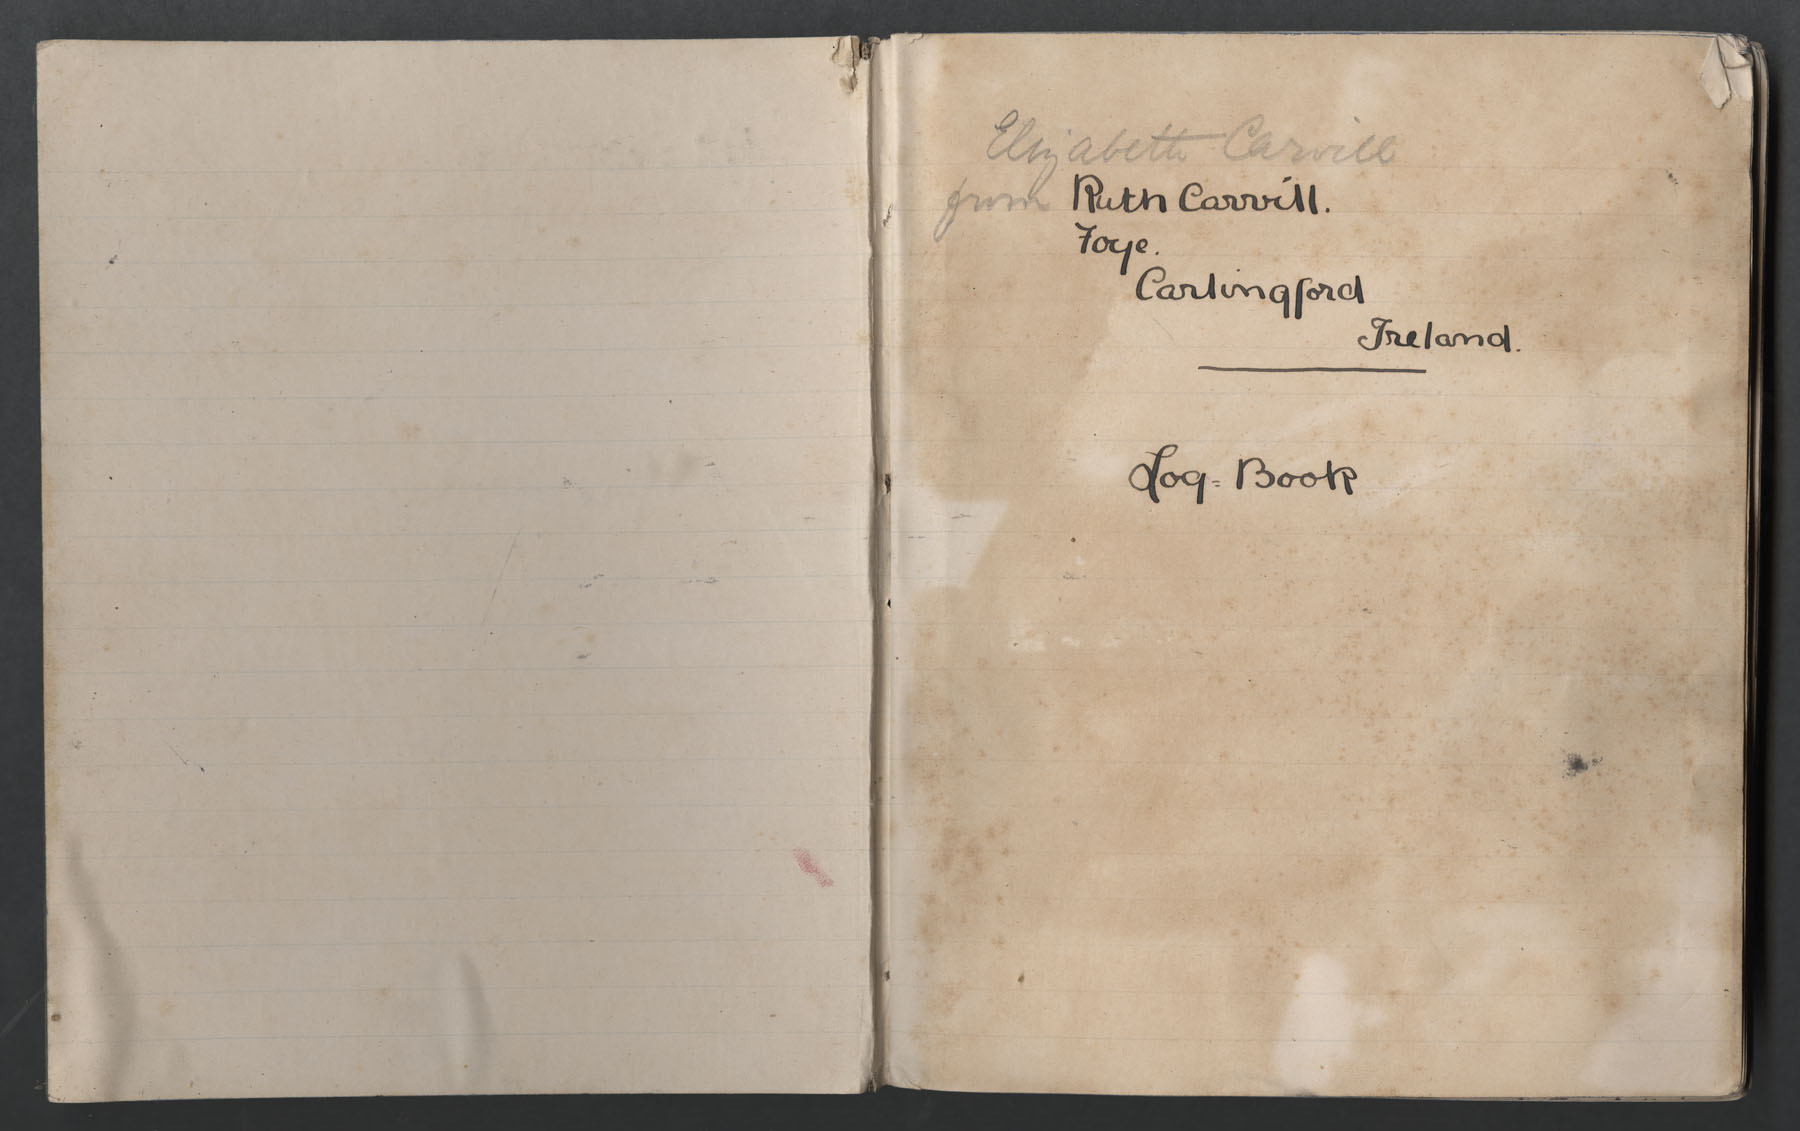 Elizabeth Carvill
from Ruth Carvill.
Foye.
Carlingford
Ireland.
Log=Book